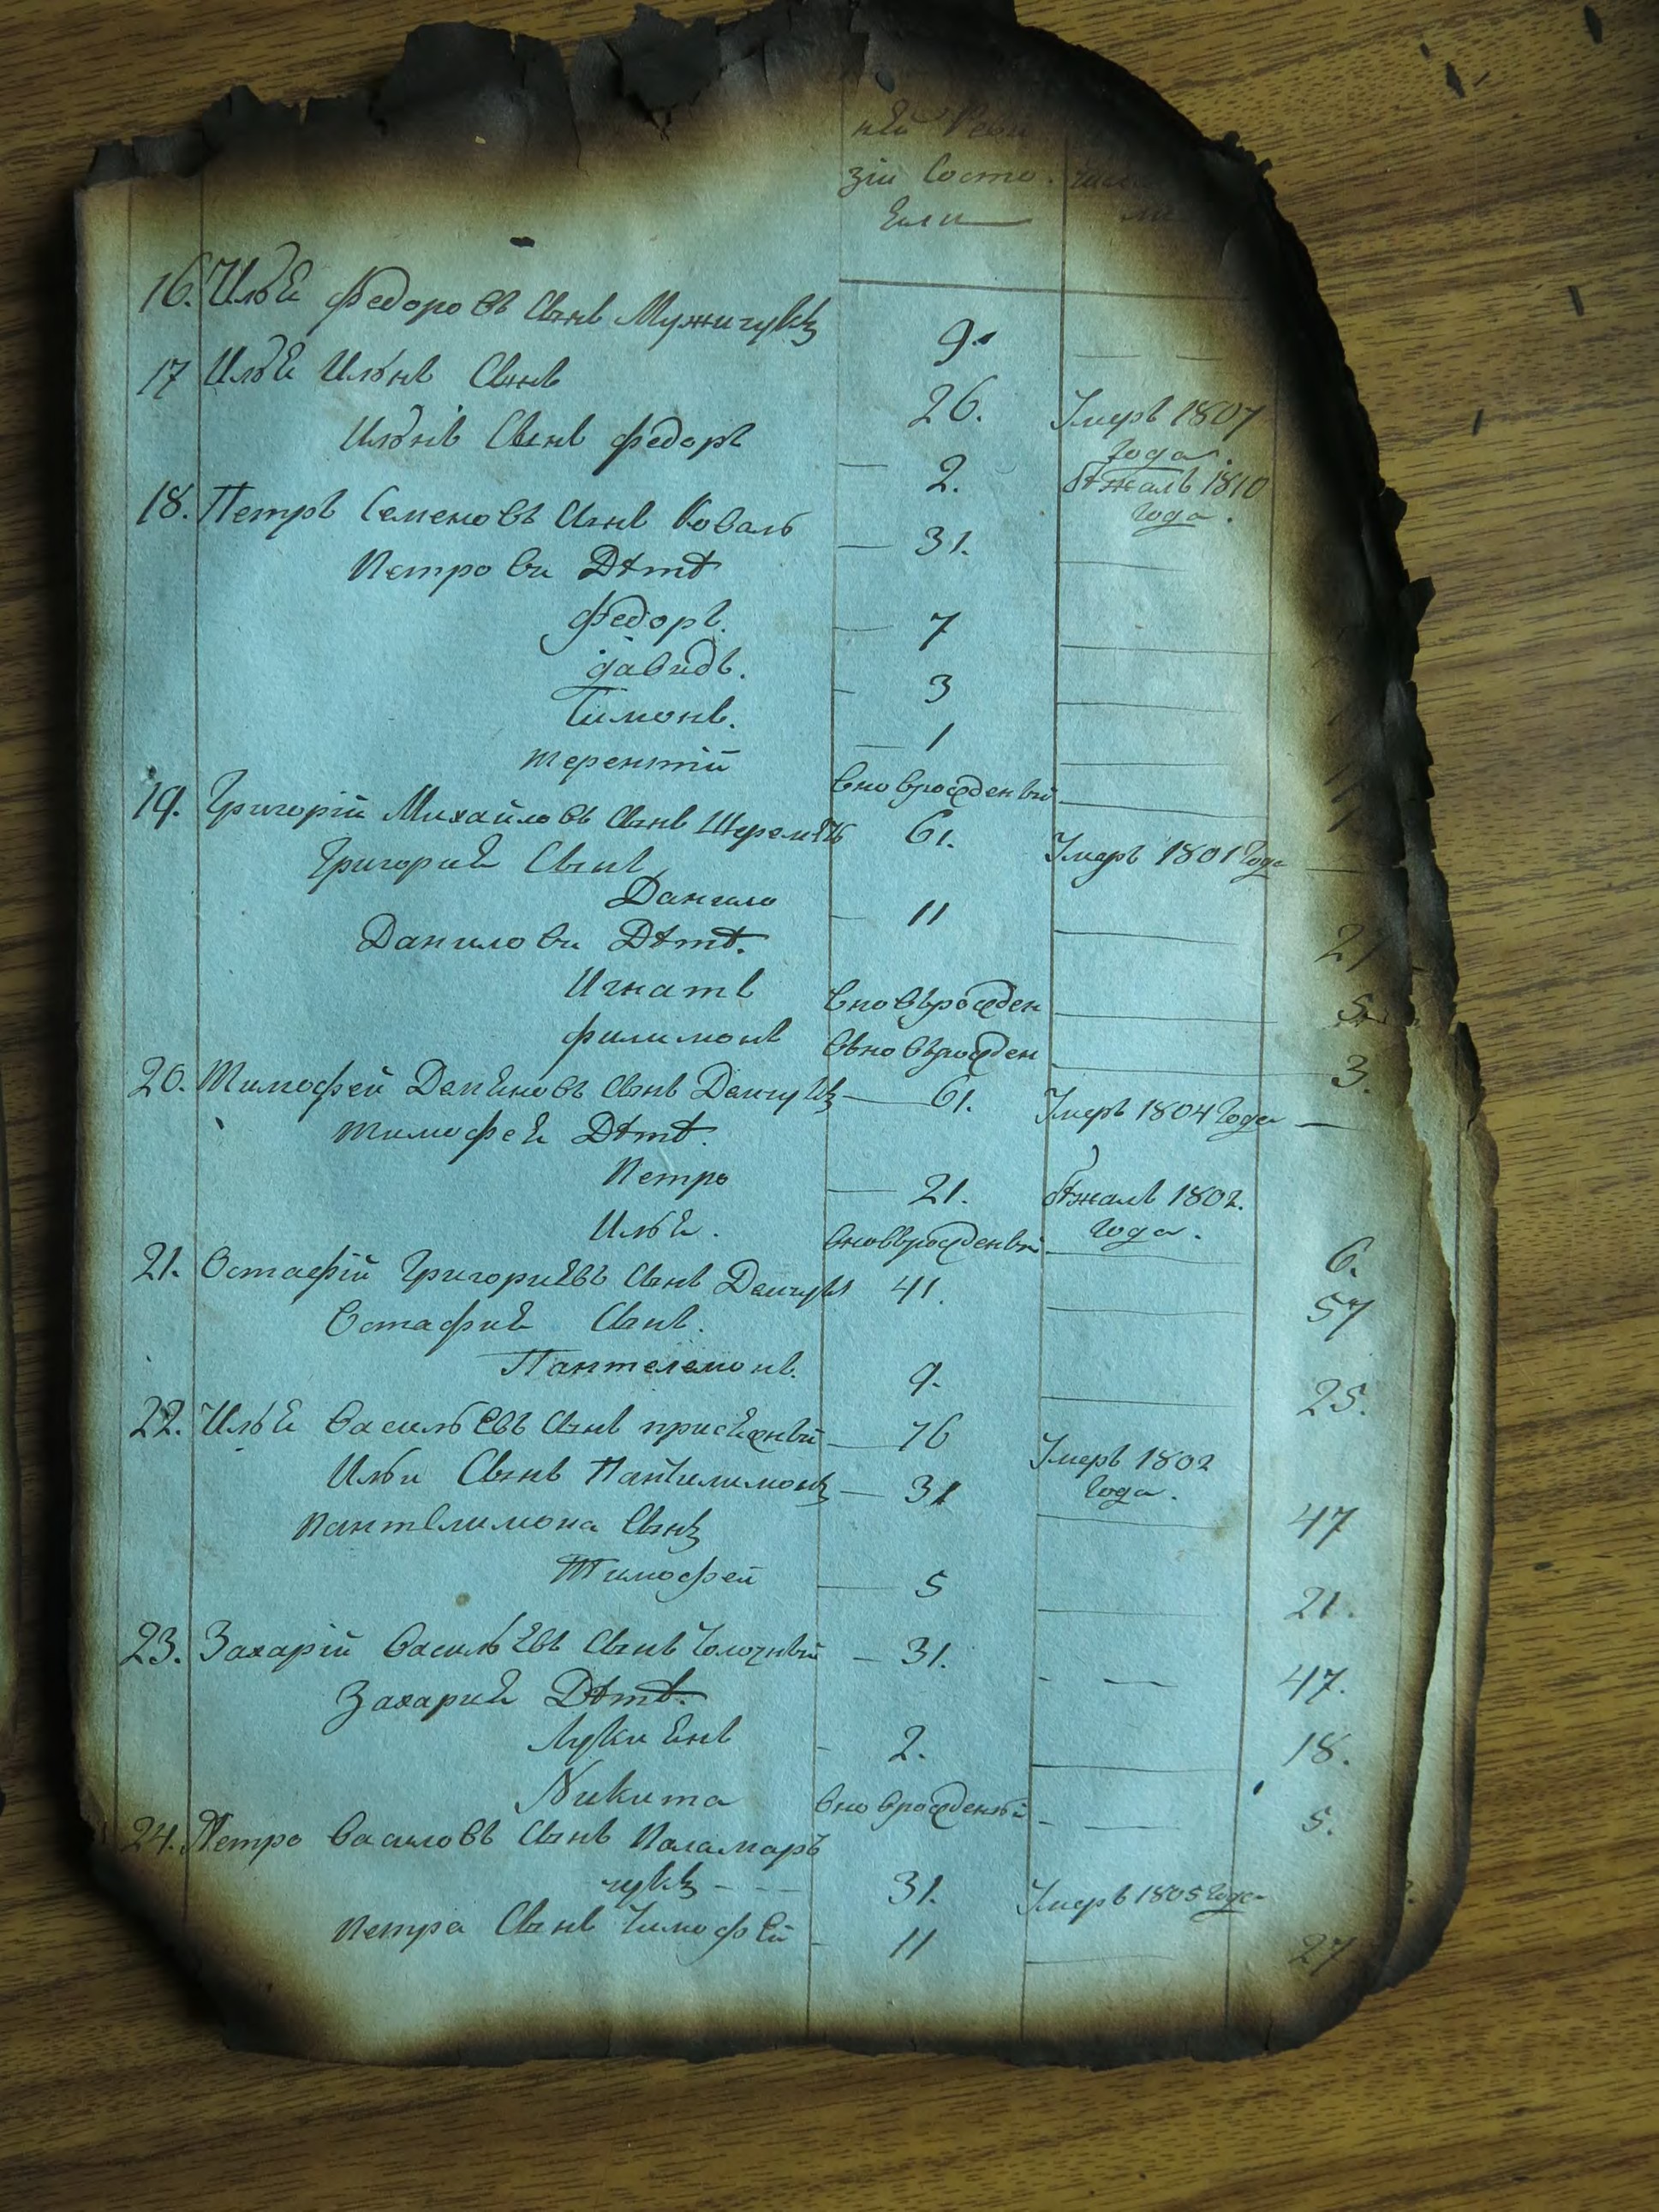 ней Реви
зіи Состо
Ели
16. Илье Федоровъ Сынъ Мужичукъ 9.
17 Илье Ильнъ Сынъ 26. Умеръ 1807 года.
Ильнъ Сынъ федоръ 2. бѣжалъ 1810 года.
18. Петръ Семеновъ Сынъ Коваль 31.
Петрови Дѣтѣ
Федоръ. 7
давидъ. 3
Тимонъ. 1
терентій вновврожденый
19. Григорій Михайловъ Сынъ Шереметъ 61. Умеръ 1801 Года
Григорие Сынъ
Данило 11 21
Данилови Дѣтѣ.
Игнатъ вновьрожден 5
филимонъ вьновьрожден 3.
20. Тимофей Деменовъ Сынъ Демчукъ 61. Умеръ 1804 Года
тимофее Дѣтѣ.
Петро 21. бѣжалъ 1802. года.
Илье. вновврожденый 6.
21. Остафій Григориевъ Сынъ Демчукъ 41. 57
Остафие Сынъ.
Пантелемонъ. 9. 25.
22. Илье Васильевъ Сынъ присежный 76 Умеръ 1802 года.
Ильи Сынъ Пантилимонъ 31 47
Пантелимона Сынъ
Тимофей 5 21.
23. Захарій Васильевъ Сынъ 31. 47.
Захарие Дѣтѣ.
Лукиенъ 2. 18.
Никита вновврожденый 5.
24. Петро Василовъ Сынъ Паламарь
чукъ 31. Умеръ 1805 Года
Петра Сынъ Тимофей 11 27